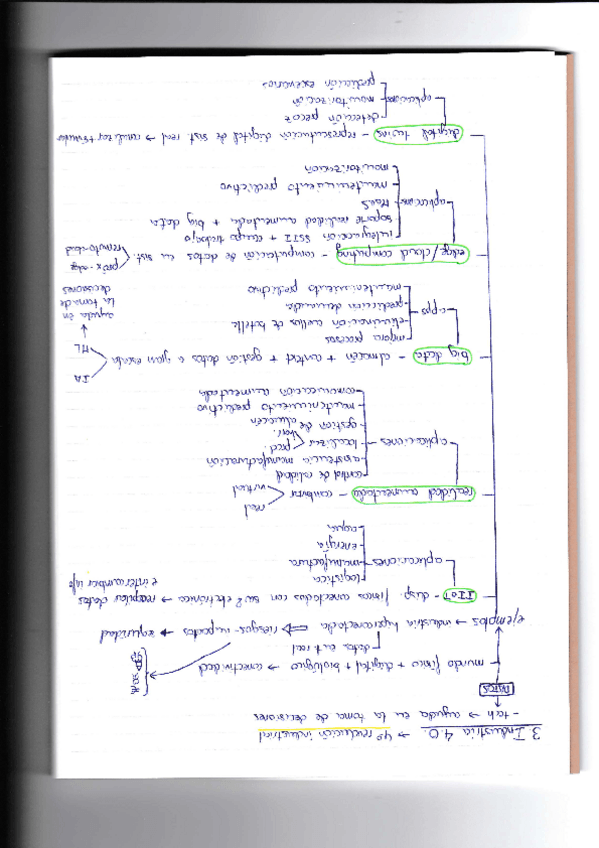 3. Industria 4.0. → 4º revolución industrial
- tech → ayuda en la toma de decisiones
DATOS
- mundo físico + digital + biológico → conectividad
datos en t real
ejemplos → industria hiperconectada ⇒ riesgos - impactos → seguridad
IIoT - disp. físicos conectados con su electrónica → recopilar datos
e intercambiar info
aplicaciones
logística
manufactura
energía
agua
realidad aumentada - combinar
real
virtual
aplicaciones
control de calidad
asistencia manufacturación
localizar
prod.
herr.
gestión de almacén
mantenimiento predictivo
comunicación aumentada
big data - almacén + context + gestión datos a gran escala
IA
ML
ayuda en
la toma de
decisiones
apps
mejora procesos
eliminación cuellos de botella
predicción demanda
mantenimiento predictivo
edge/cloud computing - computación de datos en sist.
próx-edge
remoto-cloud
aplicaciones
integración SSTI + campo trabajo
soporte realidad aumentada + big data
MaaS
mantenimiento predictivo
monitorización
digital twins - representación digital de sist. real →
aplicaciones
detección precoz
monitorización
predicción escenarios